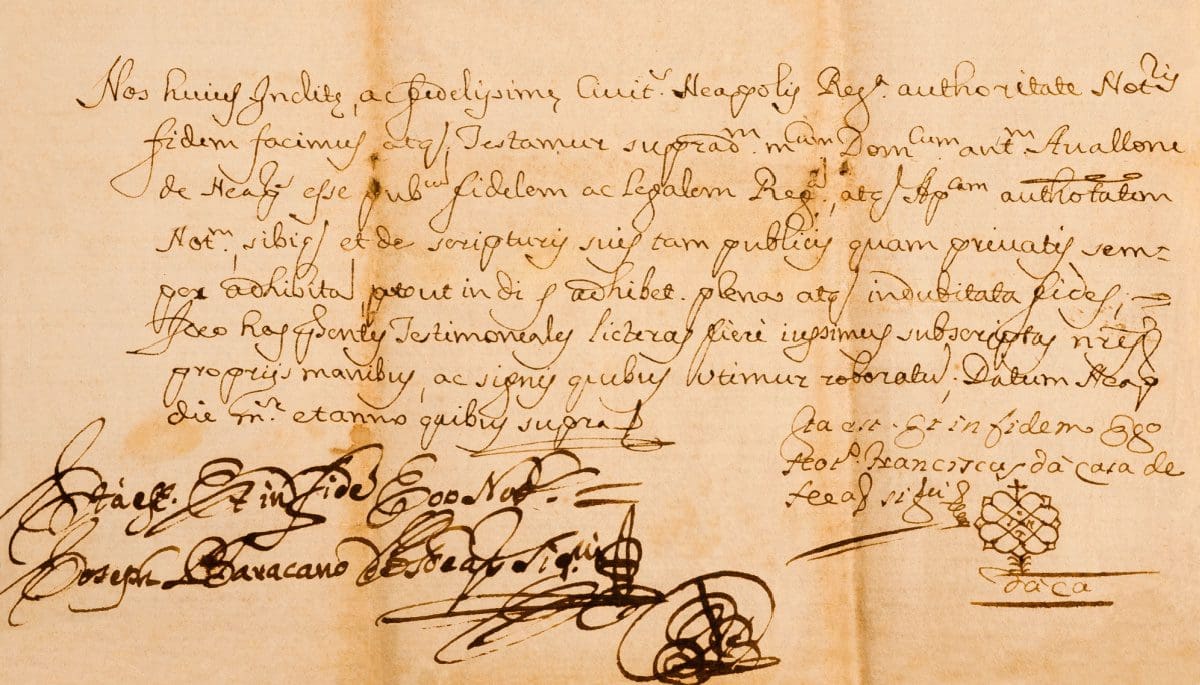 Nos huius Inclitę, ac fidelissimę Ciuit.ˢ Neapolis Reg.ᵃ authoritate Not.ʳⁱˢ
fidem facimus atq; Testamur supradᵐ mᶜᵘᵐ Domᶜᵘᵐ antᵐ Auallone
de Neap; esse pubᶜᵘᵐ fidelem ac legalem Reg.ᵃ, atq; Apᶜᵃᵐ authotatem
Notᵐ, sibiq; et de scripturis suis tam publicis quam priuatis sem=
per adhibita, prout in di s adhibet. plena atq; indubitata fides;
Ideo has pⁿsentes Testimoniales licteras fieri iussimus subscriptas nris
proprijs manibus, ac signis quibus utimur roboratas, Datum Neap
die mˢ et anno quibus supra
Ita est. Et in fidem Ego
Not.ˢ Franciscus da Cara de
Neap; sig
Ita est. Et in fide Ego Not.ˢ
Joseph Baracano de Neap sig.ᵘⁱ
da Ca